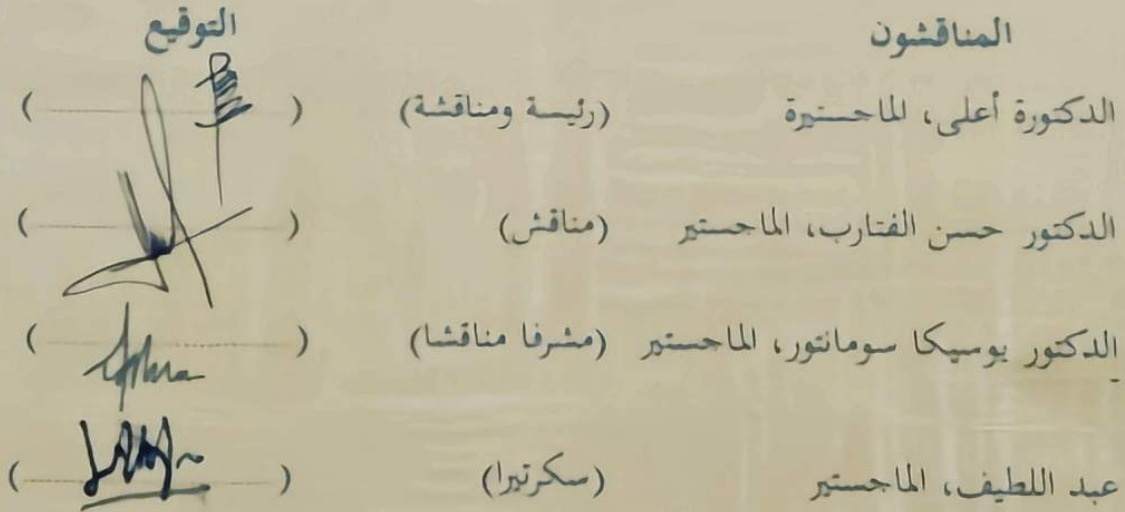 المناقشون التوقيع
الدكتورة أعلى، الماجستيرة (رئيسة ومناقشة) ( )
الدكتور حسن الفتارب، الماجستير (مناقش) ( )
الدكتور بوسيكا سومانتور، الماجستير (مشرفا مناقشا) ( )
عبد اللطيف، الماجستير (سكرتيرا) ( )